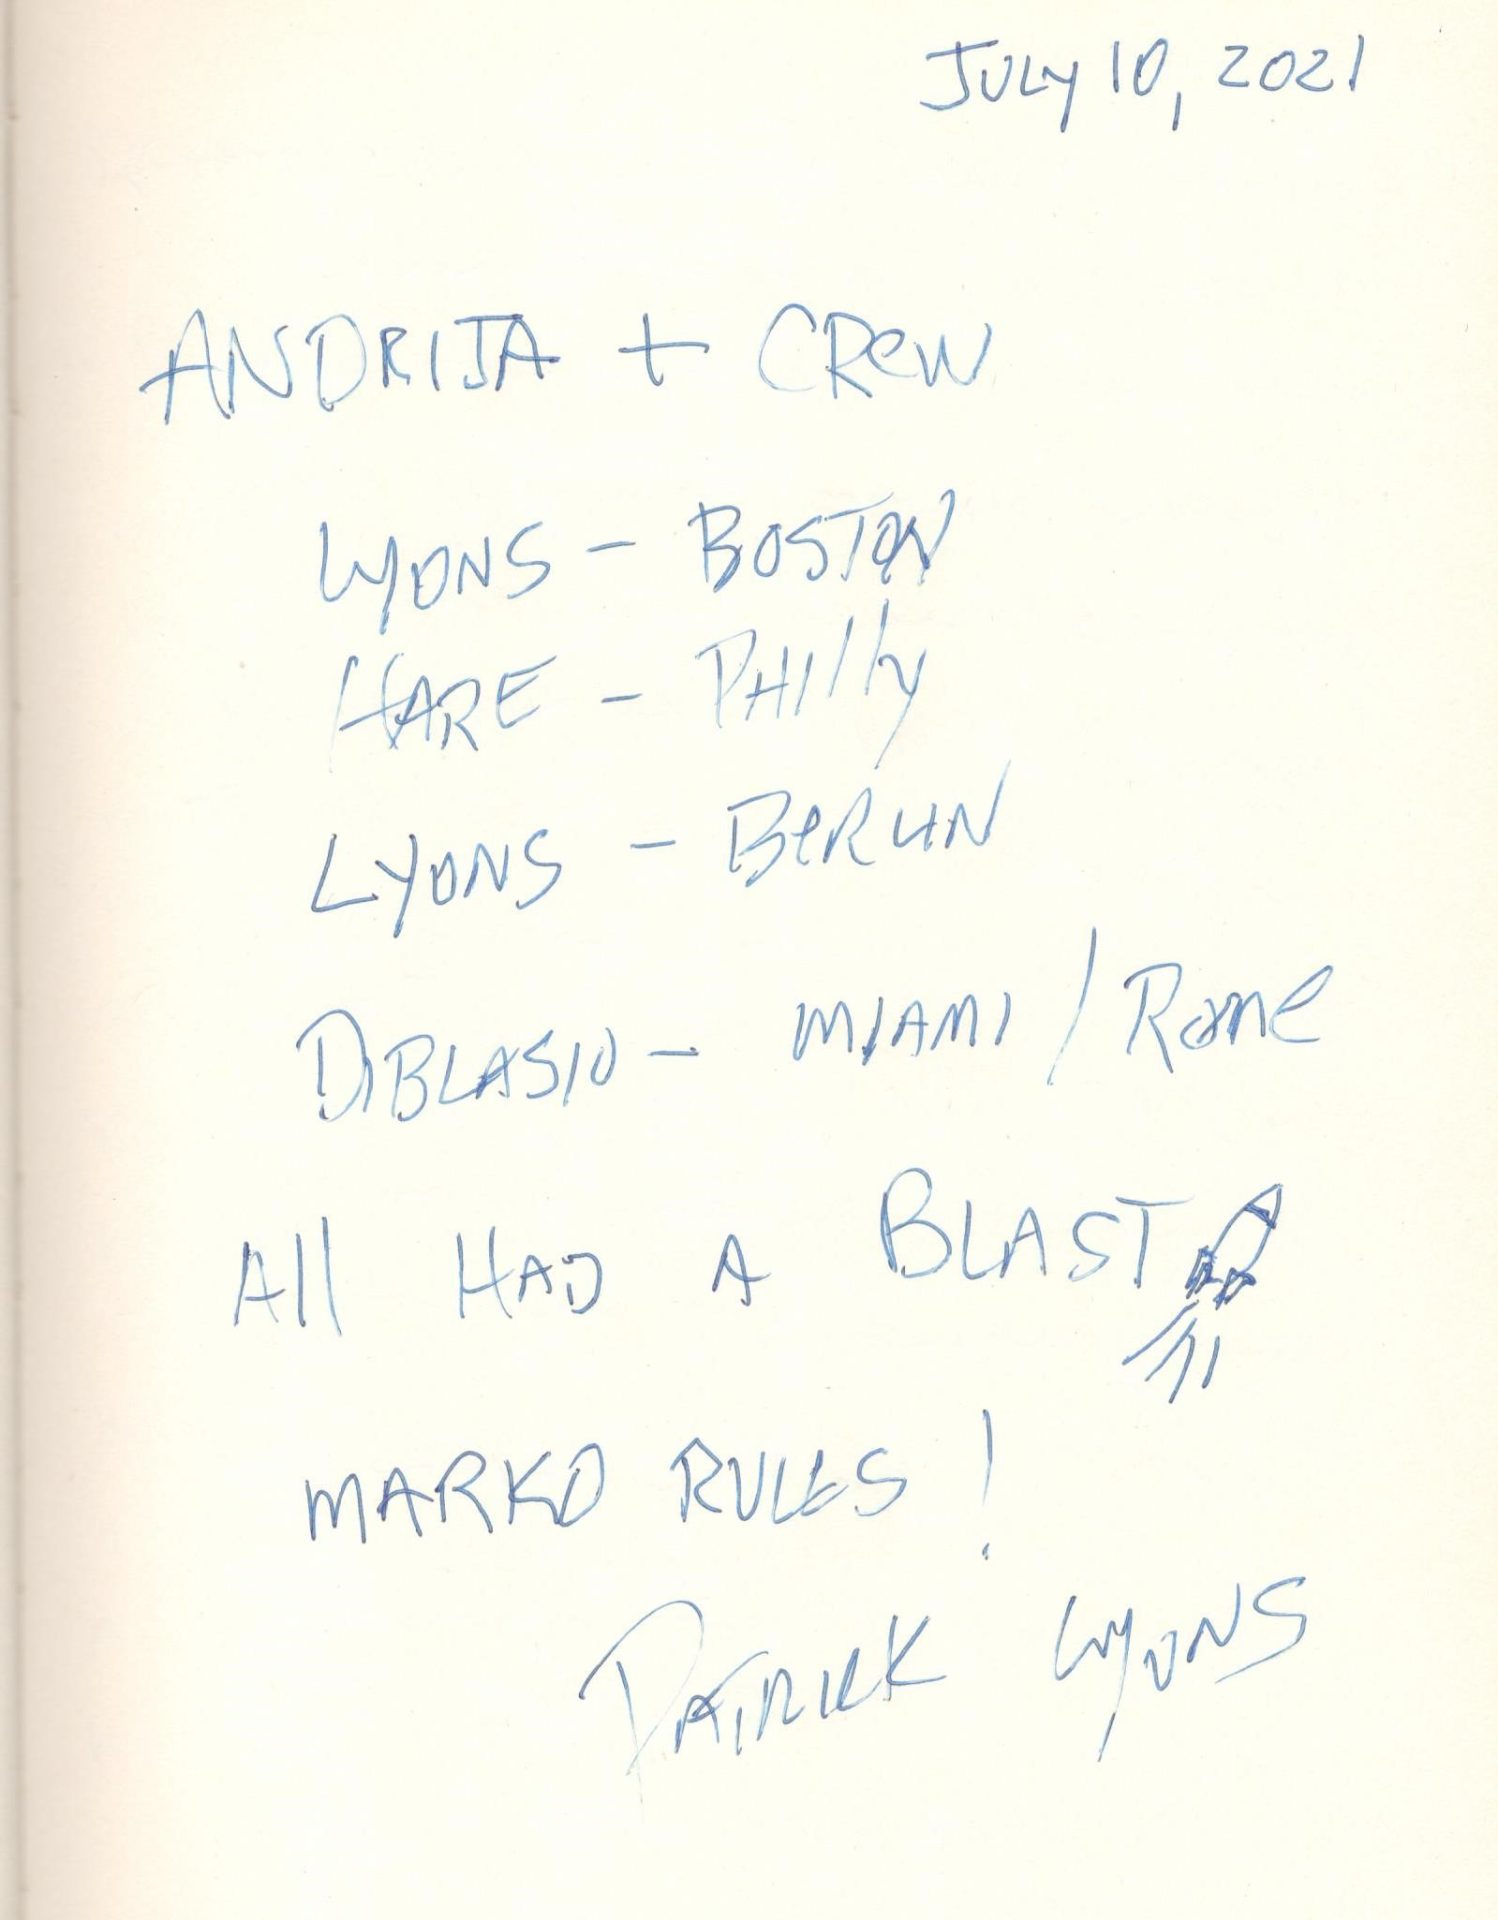 JULY 10, 2021
ANDRIJA + CREW
LYONS - BOSTON
HARE - PHIlly
LYONS - BeRLIN
DIBLASIO - MIAMI / Rome
All HAD A BLAST
MARKO RULES!
PATRICK LYONS